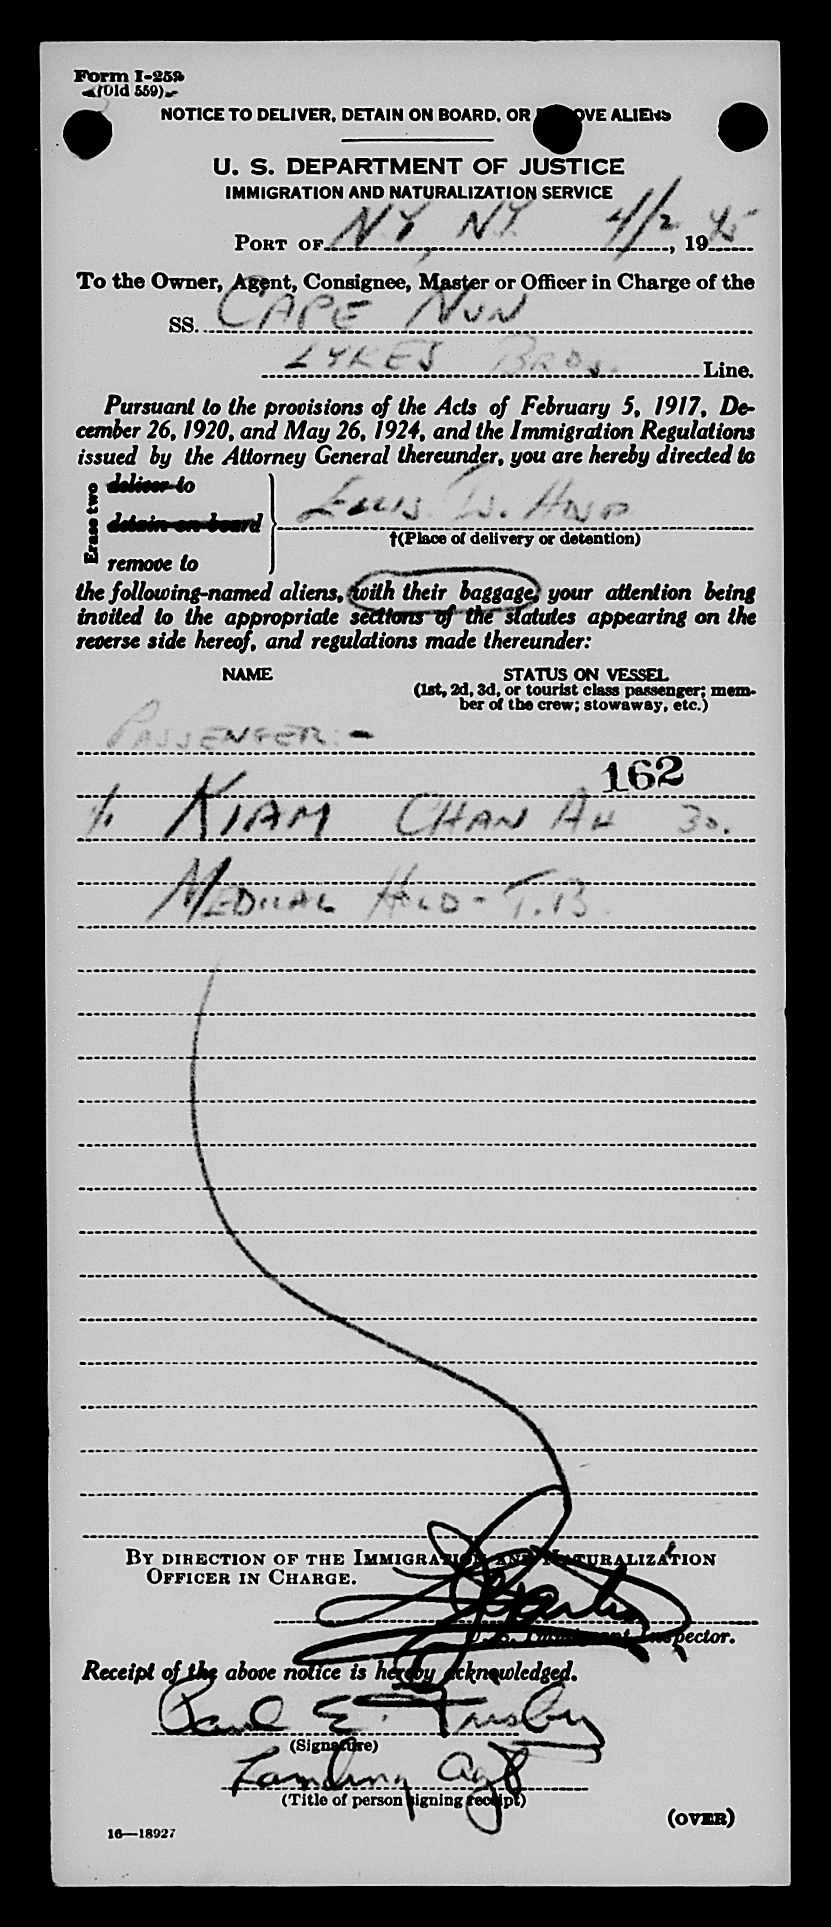 Form I-259
(Old 559)
NOTICE TO DELIVER, DETAIN ON BOARD, OR REMOVE ALIENS
U. S. DEPARTMENT OF JUSTICE
IMMIGRATION AND NATURALIZATION SERVICE
PORT OF N.Y., N.Y. 4/2, 1945
To the Owner, Agent, Consignee, Master or Officer in Charge of the
SS. CAPE NUN
LYKES BROS. Line.
Pursuant to the provisions of the Acts of February 5, 1917, De-
cember 26, 1920, and May 26, 1924, and the Immigration Regulations
issued by the Attorney General thereunder, you are hereby directed to
Erase two
deliver to
detain on board
remove to
ELLIS IS. HOSP
†(Place of delivery or detention)
the following-named aliens, with their baggage, your attention being
invited to the appropriate sections of the statutes appearing on the
reverse side hereof, and regulations made thereunder:
NAME STATUS ON VESSEL
(1st, 2d, 3d, or tourist class passenger; mem-
ber of the crew; stowaway, etc.)
PASSENGER:-
162
1. KIAM CHAN AH 30.
MEDICAL HOLD - T.B.
BY DIRECTION OF THE IMMIGRATION AND NATURALIZATION
OFFICER IN CHARGE.
U. S. Immigrant Inspector.
Receipt of the above notice is hereby acknowledged.
Paul E.
(Signature)
Landing Agt
(Title of person signing receipt)
(OVER)
16—18927